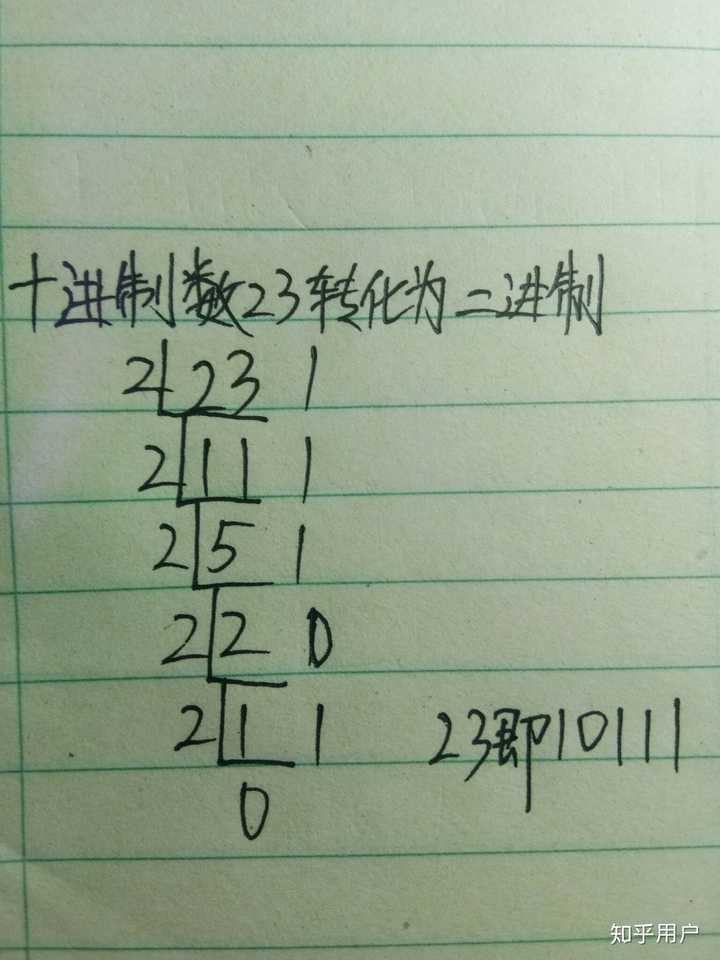 十进制数23转化为二进制
2 23 1
2 11 1
2 5 1
2 2 0
2 1 1 23即10111
0
知乎用户